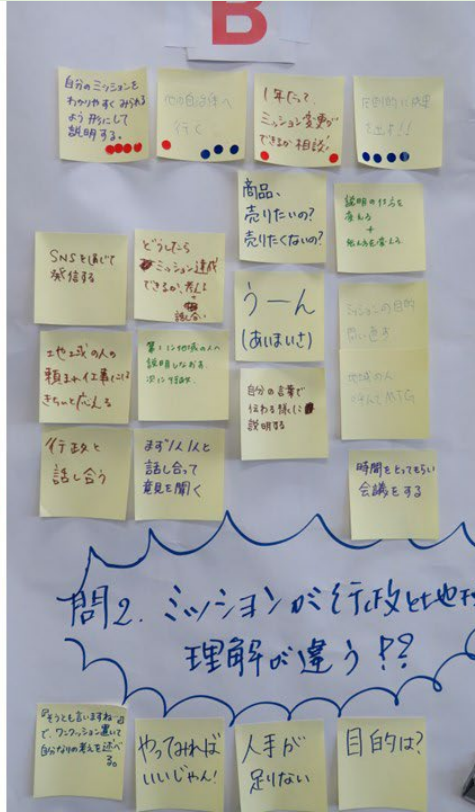 B
自分のミッションを
わかりやすくみられる
よう形にして
説明する。
他の自治体へ
行く
1年たって、
ミッション変更が
できるか相談!
圧倒的に成果
を出す!!
商品、
売りたいの?
売りたくないの?
説明の仕方を
考える
+
伝え方を変える
SNSを通じて
発信する
どうしたら
ミッション達成
できるか、考える
話し合い
うーん
(あいまいさ)
ミッションの目的
思い返す
地域の人の
頼まれ仕事にも
きちっと応える
第1に地域の人へ
説明しなおす
次に行政。
自分の言葉で
伝わる様に
説明する
地域の人
MTG
行政と
話し合う
まず1人1人と
話し合って
意見を聞く
時間をとってもらい
会議をする
問2. ミッションが行政と地
理解が違う??
『そうとも言いますね』
で、ワンクッション置いて
自分なりの考えを述べ
る。
やってみれば
いいじゃん!
人手が
足りない
目的は?